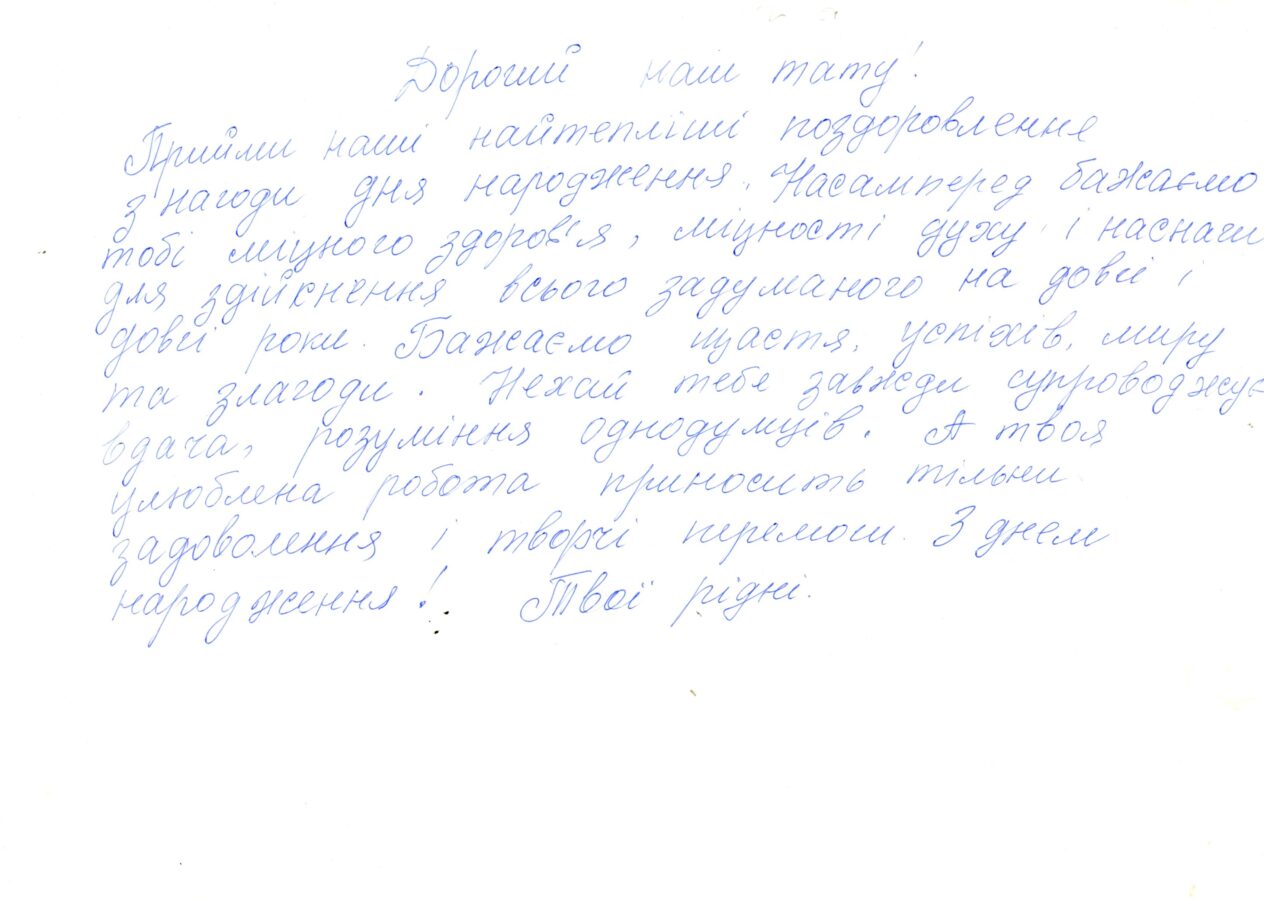 Дорогий наш тату!
Прийми наші найтепліші поздоровлення
з нагоди дня народження. Насамперед бажаємо
тобі міцного здоров'я, міцності духу і наснаги
для здійснення всього задуманого на довгі і
довгі роки. Бажаємо щастя, успіхів, миру
та злагоди. Нехай тебе завжди супроводжує
вдача, розуміння однодумців. А твоя
улюблена робота приносить тільки
задоволення і творчі перемоги. З днем
народження! Твої рідні.